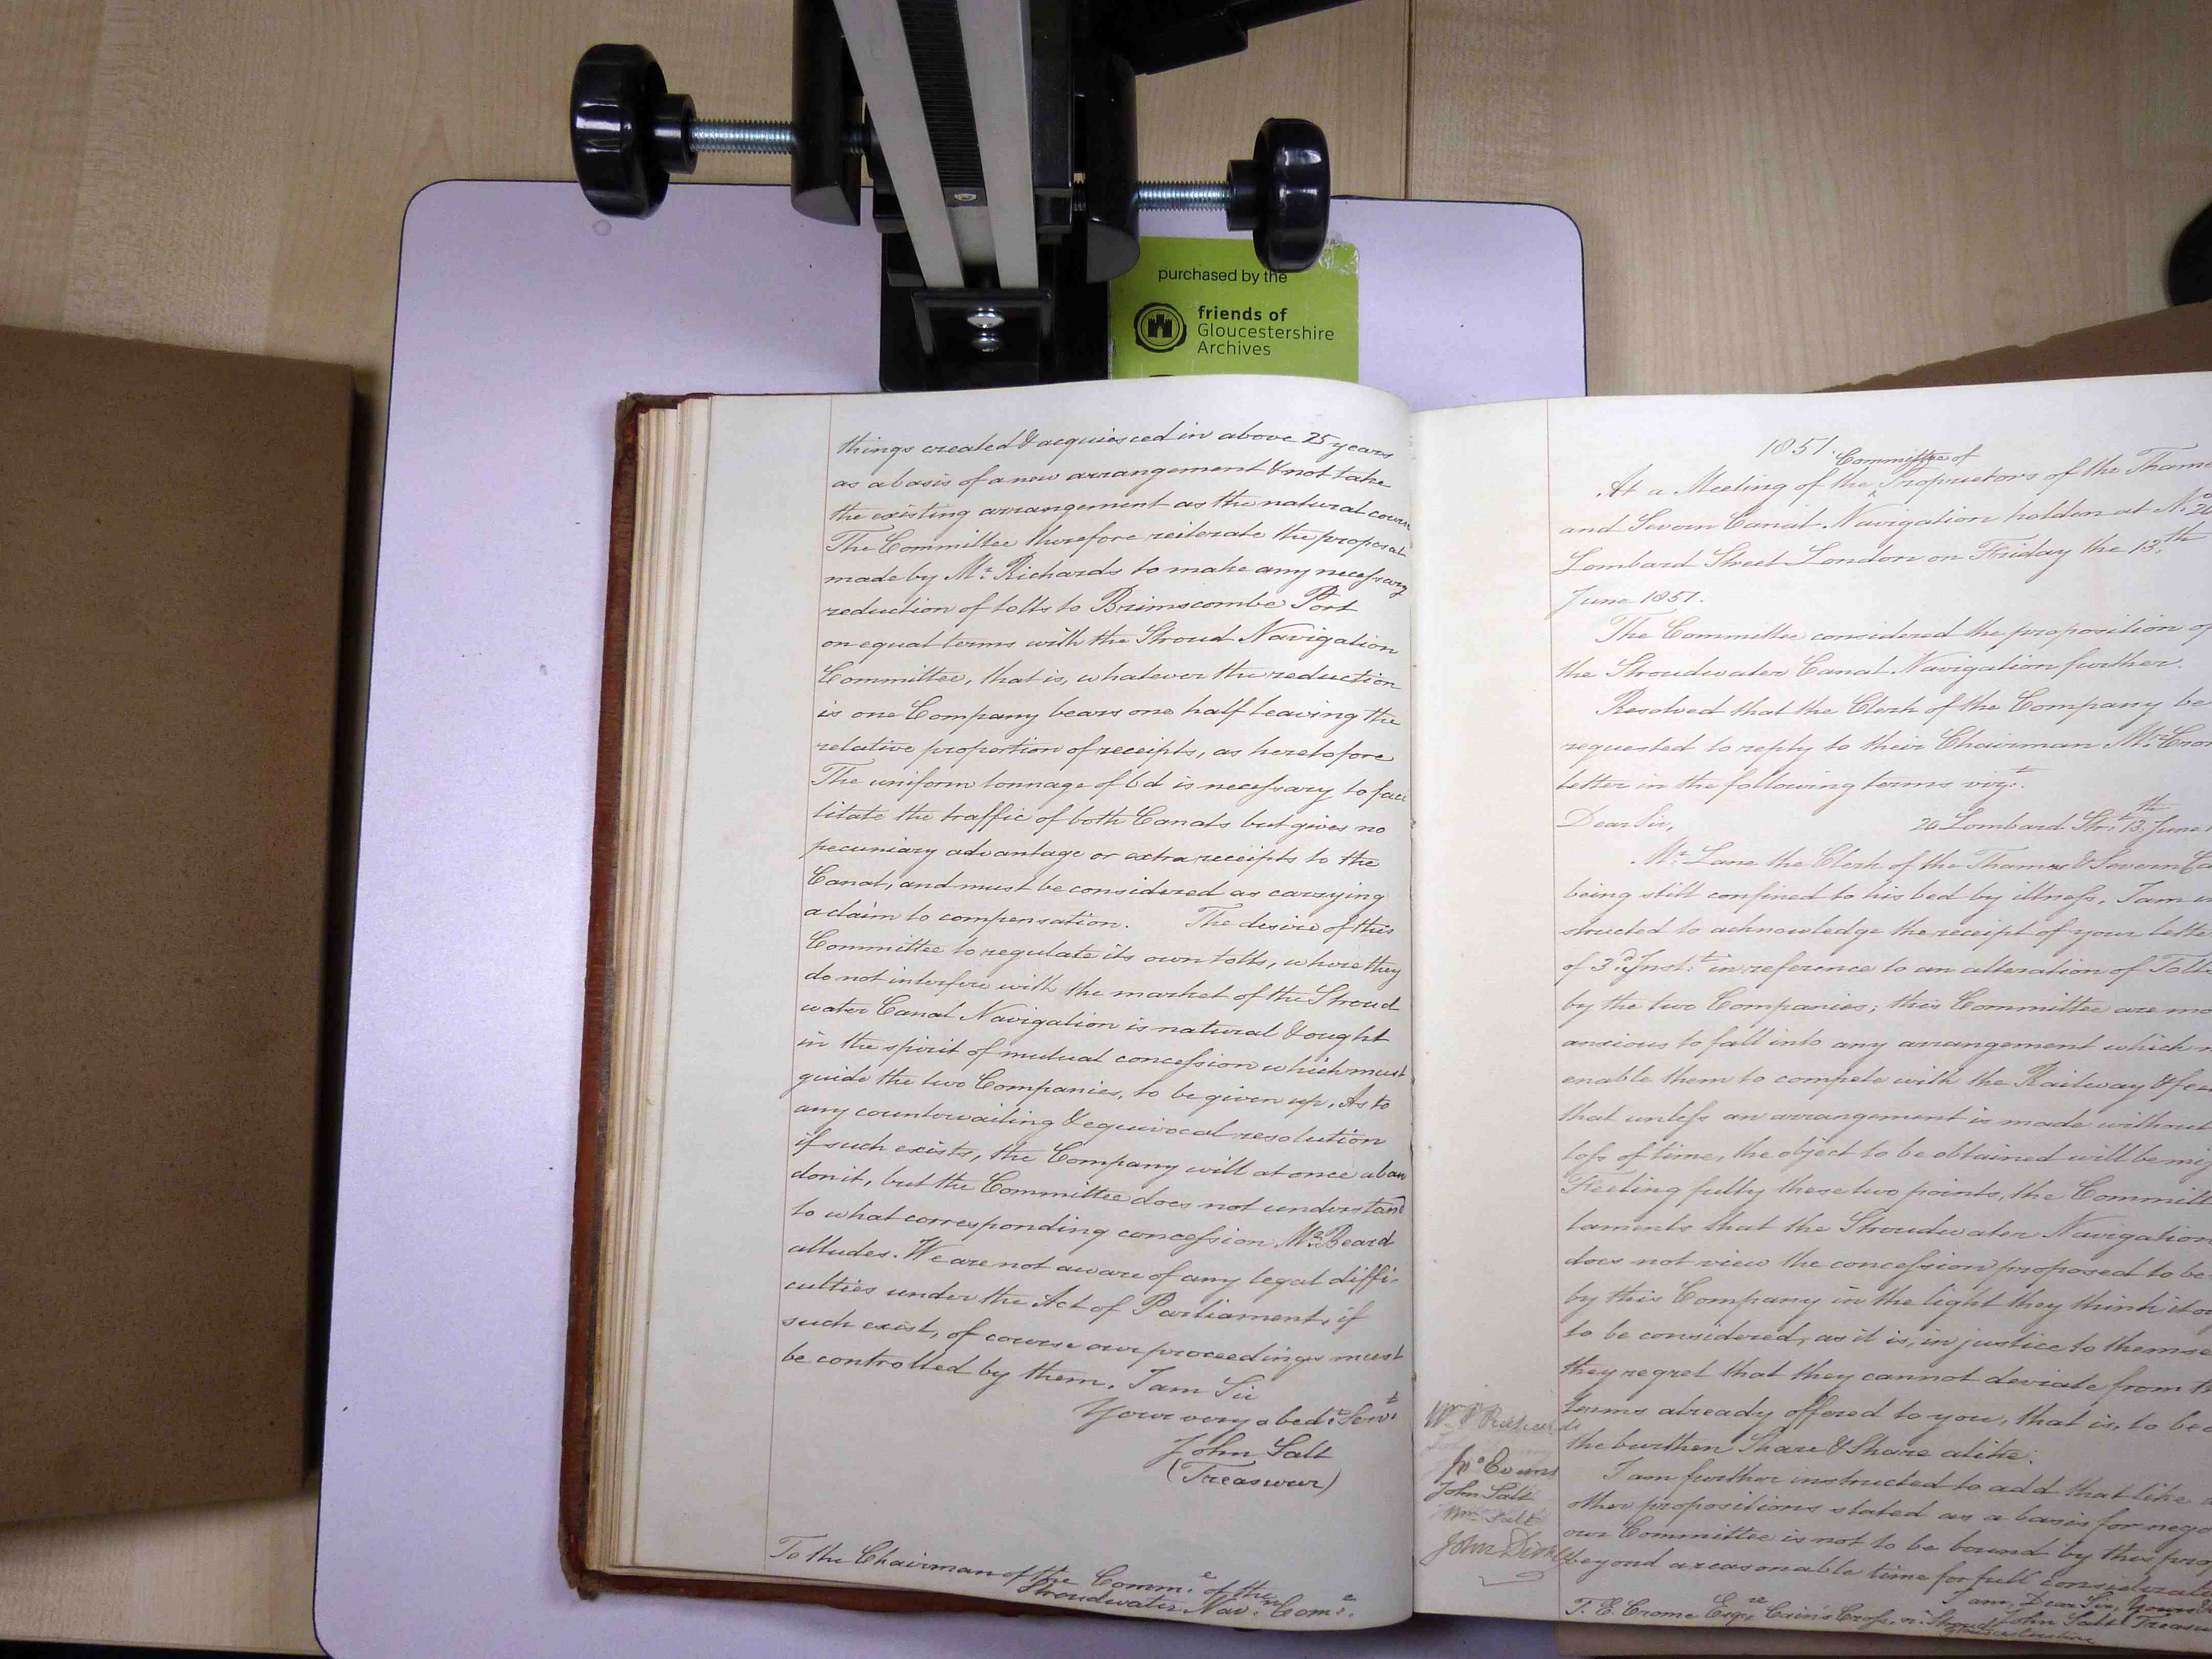 purchased by the
friends of
Gloucestershire
Archives
things created & acquiesced in above 25 years
as a basis of a new arrangement & not take
the existing arrangement as the natural
The Committee therefore reiterate the proposal
made by Mr. Richards to make any necessary
reduction of tolls to Brimscombe Port
on equal terms with the Stroud Navigation
Committee, that is, whatever the reduction
is one Company bears one half leaving the
relative proportion of receipts, as heretofore
The uniform tonnage of 6d is necessary to faci
litate the traffic of both Canals but gives no
pecuniary advantage or extra receipts to the
Canal, and must be considered as carrying
a claim to compensation. The desire of this
Committee to regulate its own tolls, where they
do not interfere with the market of the Stroud
water Canal Navigation is natural & ought
in the spirit of mutual concession which must
guide the two Companies, to be given up. As to
any countervailing & equivocal resolution
if such exists, the Company will at once aban
don it, but the Committee does not understand
to what corresponding concession Mr. Beard
alludes. We are not aware of any legal diffi-
culties under the Act of Parliament, if
such exist, of course our proceedings must
be controlled by them. I am Sir
Your very obedt. Servt.
John Salt
(Treasurer)
To the Chairman of the Comme. of the
Stroudwater Navn. Come.
1851.
Committee of
At a Meeting of the ^ Proprietors of the Thame
and Severn Canal Navigation holden at No. 20
Lombard Street London on Friday the 13th
June 1851.
The Committee considered the proposition of
the Stroudwater Canal Navigation further.
Resolved that the Clerk of the Company be
requested to reply to their Chairman Mr. Crom
letter in the following terms vizt.
Dear Sir, 20 Lombard Strt. 13th June
Mr. Lane the Clerk of the Thames & Severn Ca
being still confined to his bed by illness, I am in
structed to acknowledge the receipt of your lette
of 3rd. Inst. in reference to an alteration of Toll
by the two Companies; this Committee are mo
anxious to fall into any arrangement which m
enable them to compete with the Railway & fe
that unless an arrangement is made without
loss of time, the object to be obtained will be mi
Feeling fully these two points, the Committ
laments that the Stroudwater Navigation
does not view the concession proposed to be
by this Company in the light they think it o
to be considered, as it is, in justice to themse
they regret that they cannot deviate from th
terms already offered to you, that is, to be
the burthen Share & Share alike.
I am further instructed to add that like a
other propositions stated as a basis for nego
our Committee is not to be bound by this prop
beyond a reasonable time for full considerati
I am, Dear Sir, Your
T. E. Crome Esqre. Cains Cross, nr. Stroud John Salt Treasu
Gloucestershire
Wm. P. Richards
Jno. Evans
John Salt
Wm. Salt
John